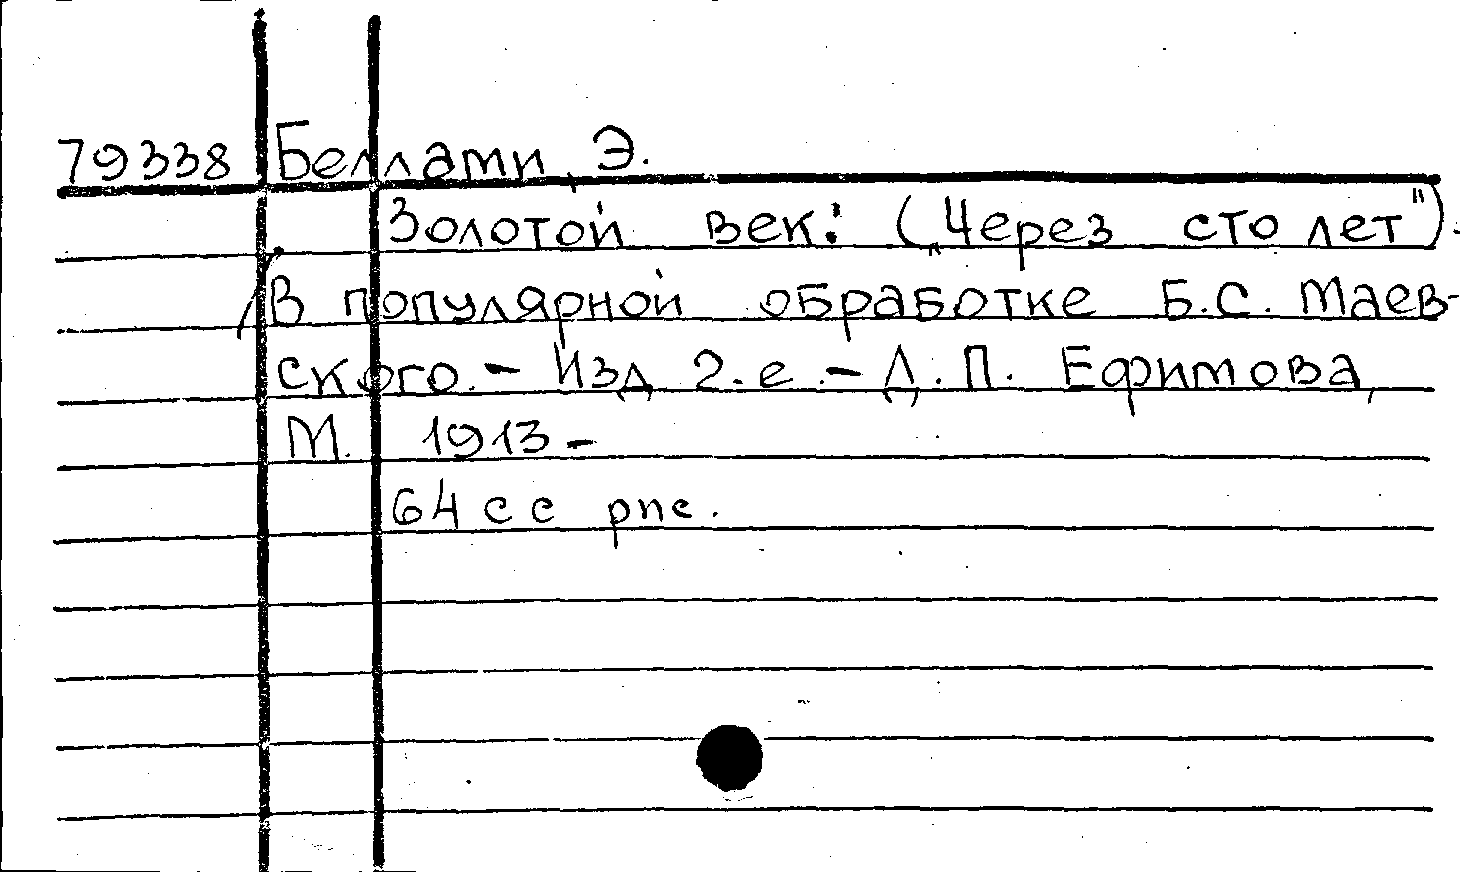 79338 Беллами, Э.
Золотой век: („Через сто лет").
/В популярной обработке Б.С. Маев-
ского. - Изд 2.е. - Д. П. Ефимова,
М. 1913 -
64 с с рис.